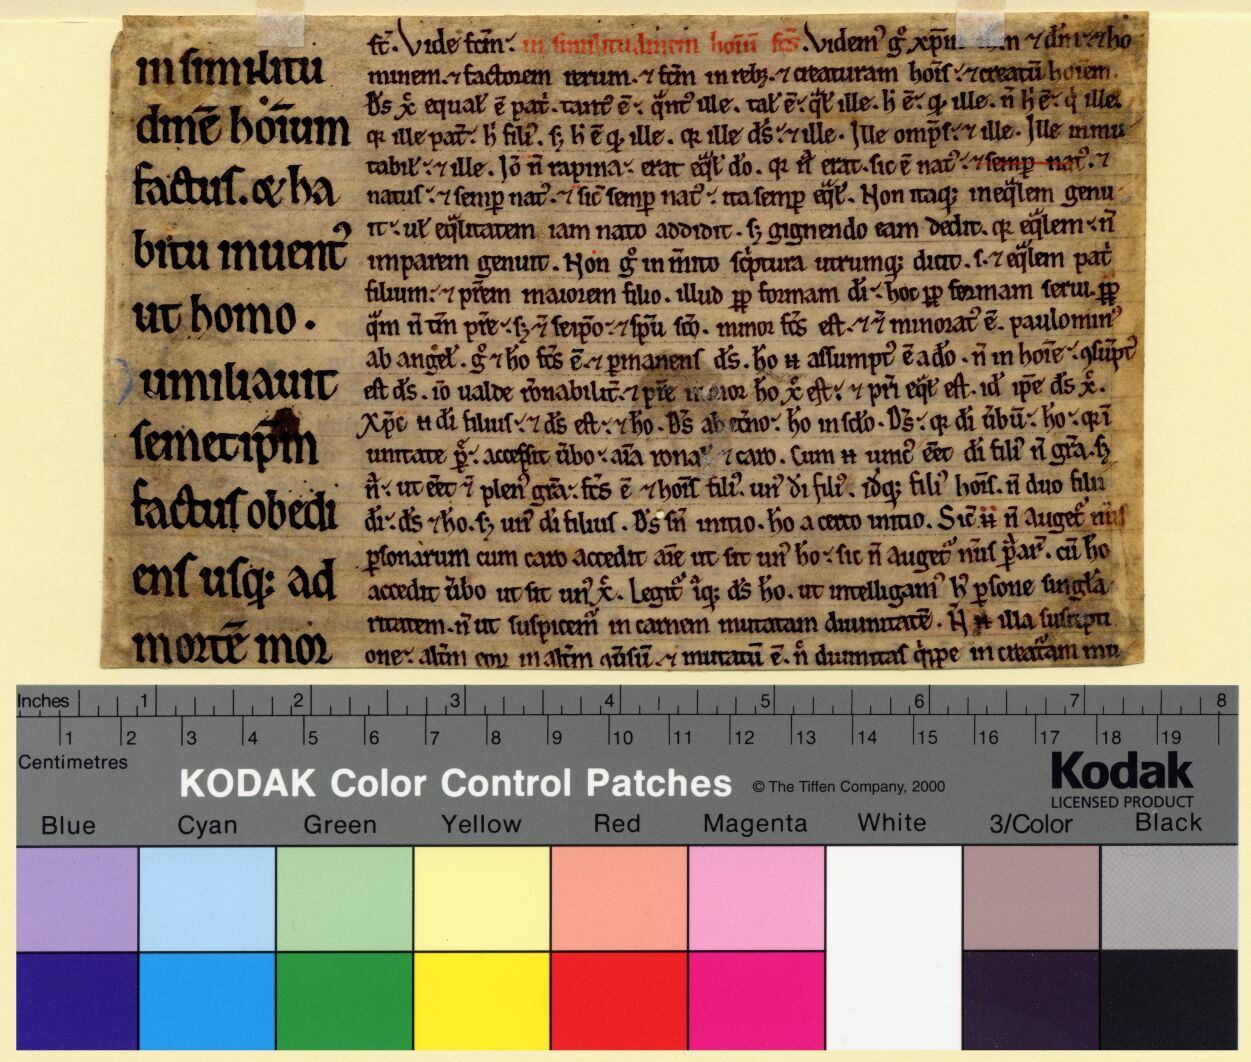 in similitu
dinē hoīum
factus. & ha
bitu inuent᷒
ut homo.
umiliauit
semetip̄m
factus obedi
ens usq; ad
mortē mor
fc̄. Vide fc̄m. in similitudinem hoīū fc̄s. Videm᷒ gͦ xp̄m
minem. ⁊ factorem rerum. ⁊ fc̄m in reb; ⁊ creaturam hoīs. ⁊ creatū hoīem.
D̄s x̄ equal̄ ē pat̄. tant᷒ ē. qͣnt᷒ ille. tal̄ ē. ql̄ ille. h ē. q̄ ille. n̄ h ē. qͥ ille.
ille pat̄. h fili᷒. ẜ; h ē q̄ ille. ille d̄s. ⁊ ille. Ille omp̄s. ⁊ ille. Ille inmu
tabil̄. ⁊ ille. Iō n̄ rapina. erat eq̄l̄ d̄o. n̄ erat. sic ē nat᷒. ⁊ semp̱ nat᷒. ⁊
natus. ⁊ semp̱ nat᷒. ⁊ sic semp̱ nat᷒. ita semp̱ eq̄l̄. Non itaq; ineq̄lem genu
it. ul̄ eq̄litatem iam nato addidit. ẜ; gignendo eam dedit. eq̄lem. n̄
imparem genuit. Non gͦ inm̄ito sc̄ptura utrumq; dicit. s. ⁊ eq̄lem pat̄
filium. ⁊ pr̄em maiorem filio. illud ꝓp̱ formam di. hoc ꝓp̱ formam serui.
qͣm n̄ tm̄ pr̄e. ẜ; ⁊ seip̄o. ⁊ sp̄u sc̄o. minor fc̄s est. ⁊ minorat᷒ ē. paulomin᷒
ab angel̄. gͦ ⁊ h̄o fc̄s ē. ⁊ p̱manens d̄s. h̄o assumpt᷒ ē a d̄o. n̄ in hoīe. ꝯsūpt᷒
est d̄s. iō ualde rōnabilit̄. ⁊ pr̄e minor h̄o x̄ est. ⁊ pr̄i eq̄l̄ est. id ip̄e d̄s x̄.
Xp̄c di filius. ⁊ d̄s est. ⁊ h̄o. D̄s. di ūbū. h̄o.
unitate accessit ūbo. aīa ⁊ caro. Cum di fili᷒ n̄ gr̄a. ẜ;
ut plen᷒ gr̄a. fc̄s ē ⁊ hoīs fili᷒. un᷒ di fili᷒. idq; fili᷒ hoīs. n̄ duo filii
di. d̄s ⁊ h̄o. ẜ; un᷒ di filius. D̄s sn̄ initio. h̄o a certo initio. n̄ auget᷒
p̱sonarum cum caro accedit aīe ut sit un᷒ h̄o. sic n̄ auget᷒ cū h̄o
accedit ūbo ut sit un᷒ x̄. Legit᷒ d̄s h̄o. ut intelligam᷒ p̱sone singla
ritatem. n̄ ut suspicem᷒ in carnem mutatam diuinitatē. illa suscepti
one. in alt̄m ꝯūsū. ⁊ mutatū ē. n̄ diuinitas in creatͣam mu
Inches 1 2 3 4 5 6 7 8
1 2 3 4 5 6 7 8 9 10 11 12 13 14 15 16 17 18 19
Centimetres
KODAK Color Control Patches © The Tiffen Company, 2000
Kodak
LICENSED PRODUCT
Blue Cyan Green Yellow Red Magenta White 3/Color Black